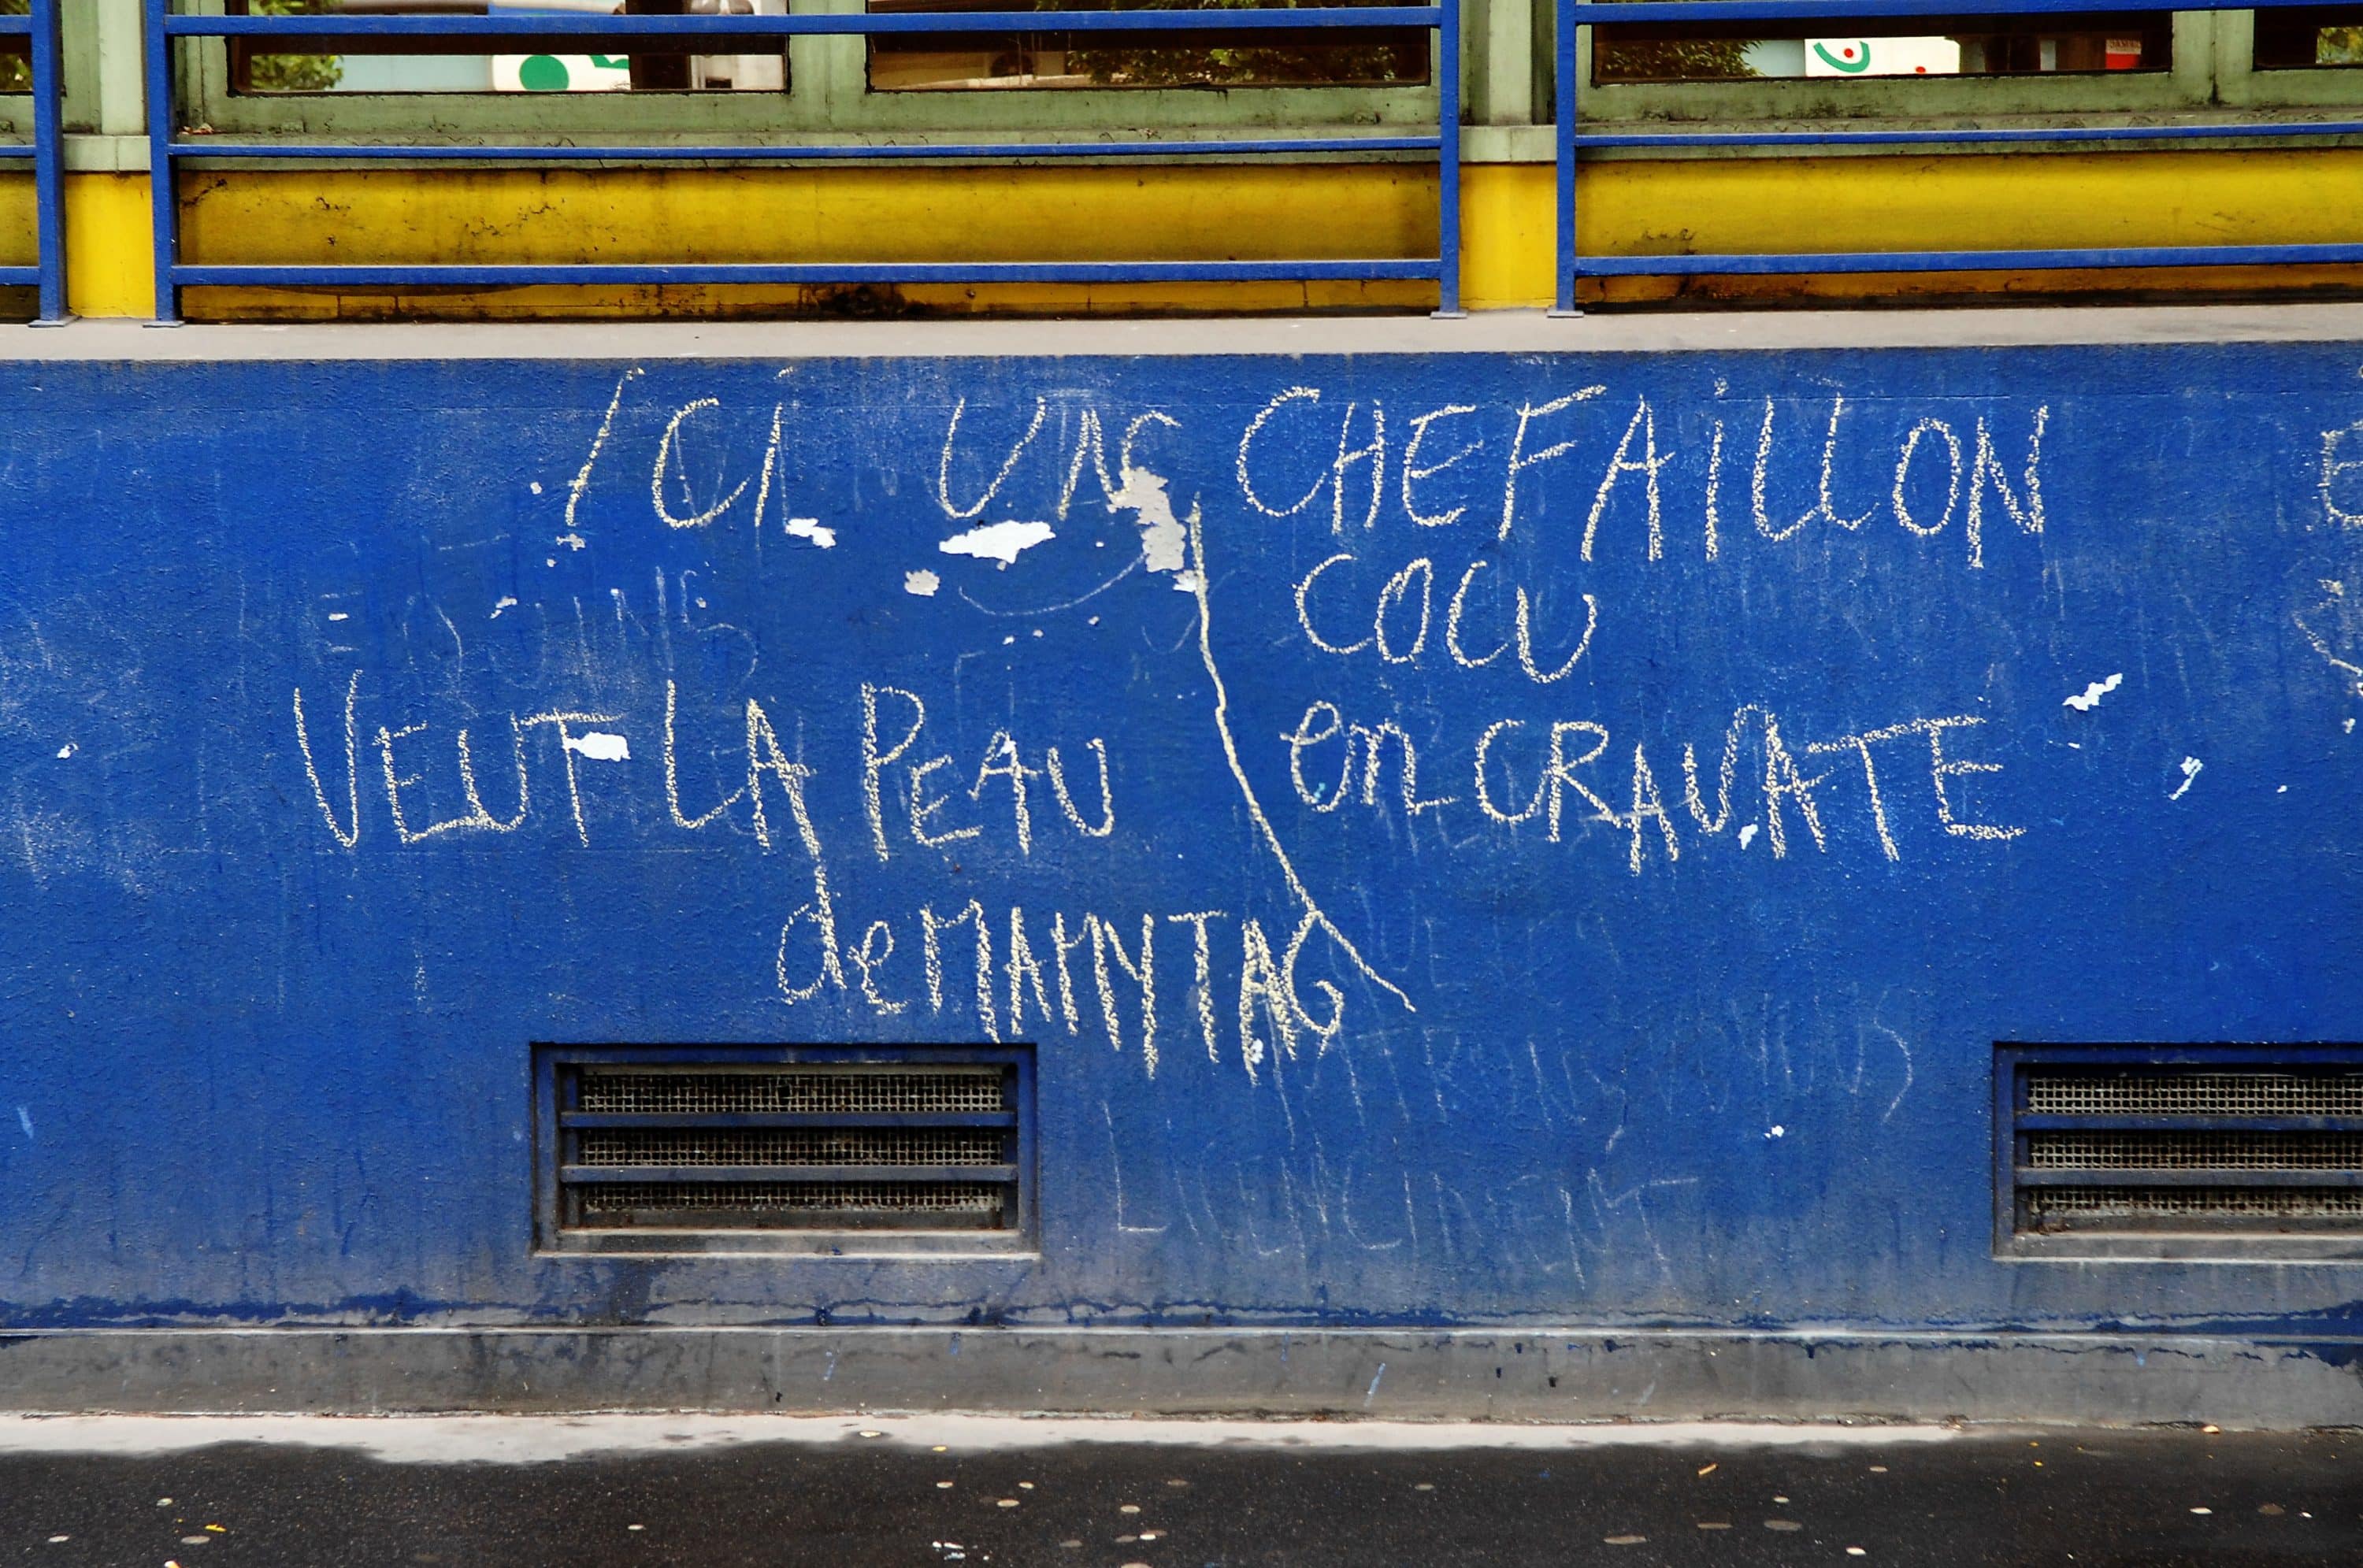 ICI UN CHEFAILLON
COCU
VEUT LA PEAU en CRAVATE
de MAMYTAG